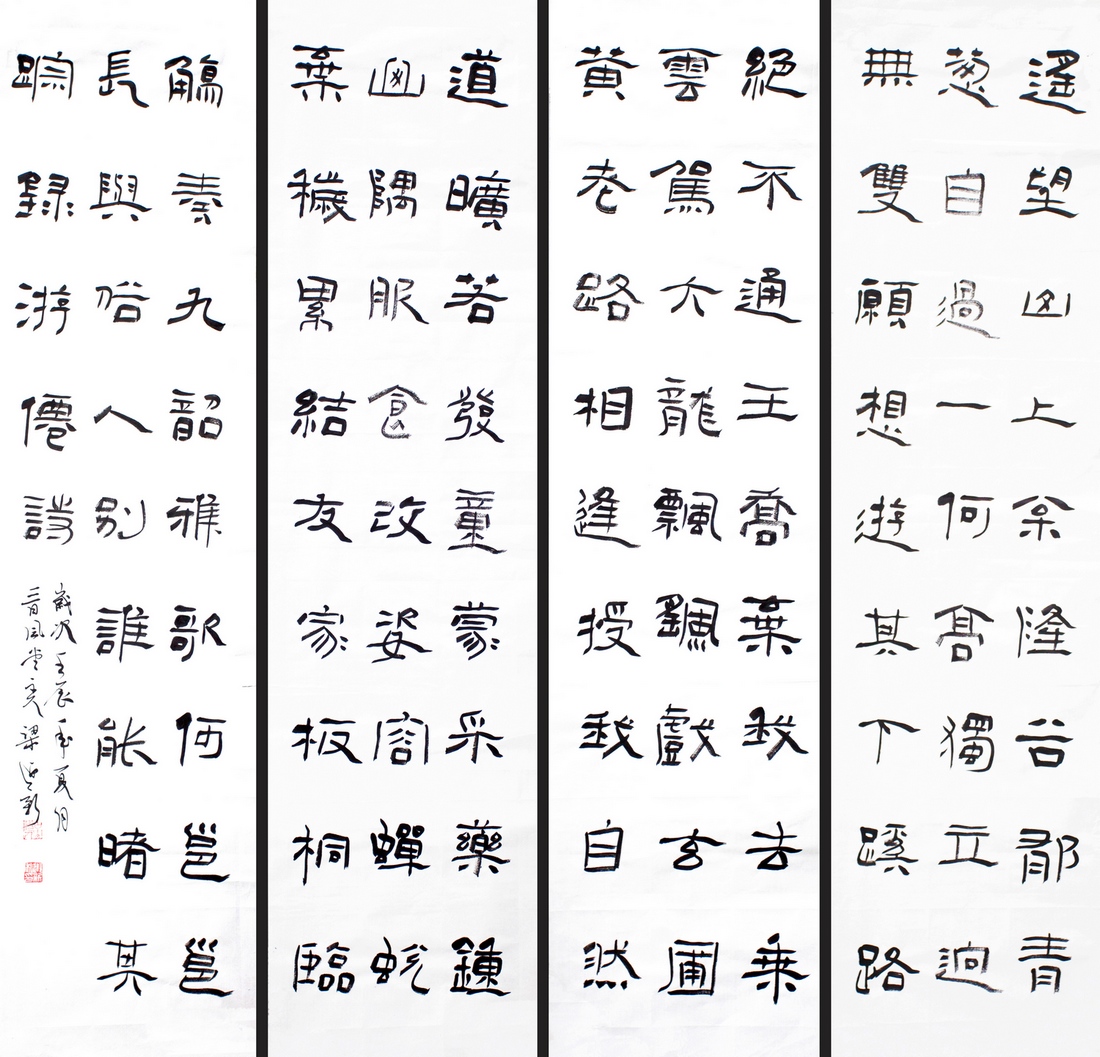 遙望山上枀隆谷郁青
葱自過一何高獨立迥
無雙願想遊其下蹊路
絕不通王喬棄我去乘
雲駕六龍飄飖戲玄圃
黃老路相逢授我自然
道曠若發童蒙采藥鍾
山隅服食改姿容蟬蛻
棄穢累結友家板桐臨
觴奏九韶雅歌何邕邕
長與俗人別誰能睹其
踪錄游僊詩
歲次壬辰年夏月